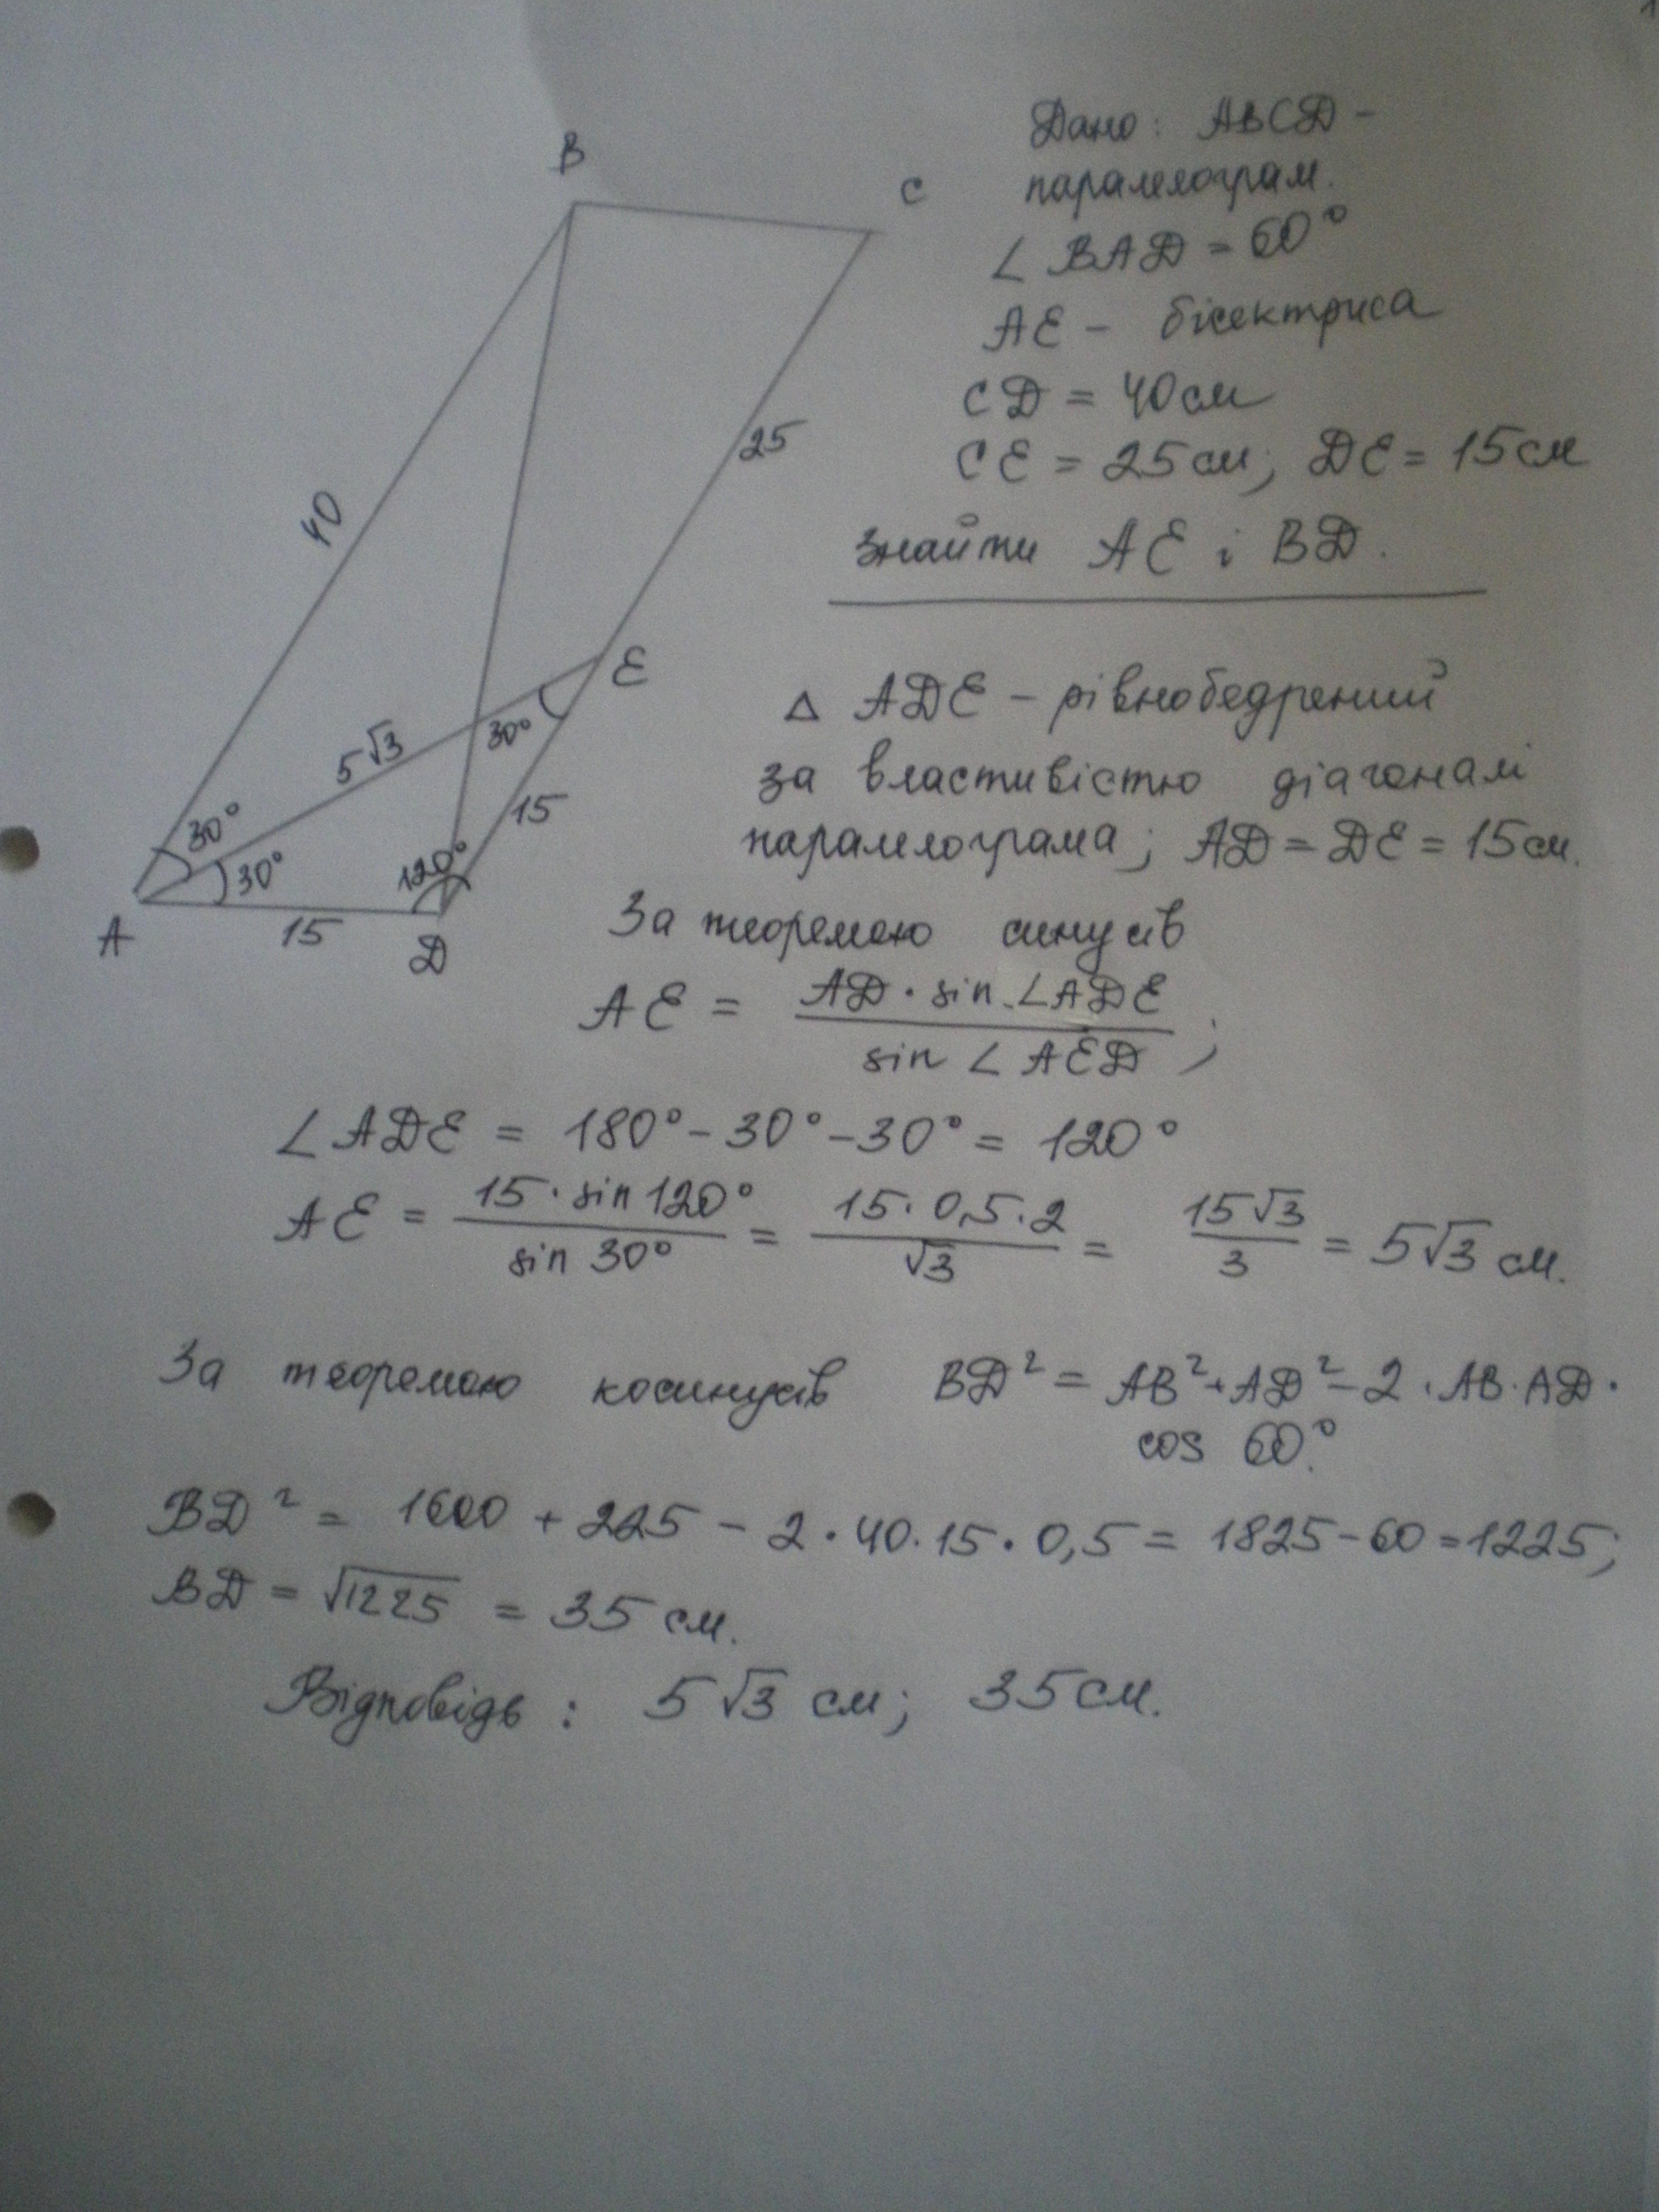 B
C
40
25
E
5√3
30°
15
30°
30°
120°
A
15
D
Дано: ABCD –
паралелограм.
∠ BAD = 60°
AE – бісектриса
CD = 40 см
CE = 25 см; DE = 15 см
Знайти AE і BD.
△ ADE – рівнобедрений
за властивістю діагоналі
паралелограма; AD = DE = 15 см.
За теоремою синусів
AE = (AD · sin ∠ADE) / (sin ∠ AED);
∠ADE = 180° – 30° – 30° = 120°
AE = (15 · sin 120°) / (sin 30°) = (15 · 0,5 · 2) / √3 = 15√3 / 3 = 5√3 см.
За теоремою косинусів BD² = AB² + AD² – 2 · AB · AD ·
cos 60°.
BD² = 1600 + 225 – 2 · 40 · 15 · 0,5 = 1825 – 60 = 1225;
BD = √1225 = 35 см.
Відповідь: 5√3 см; 35 см.